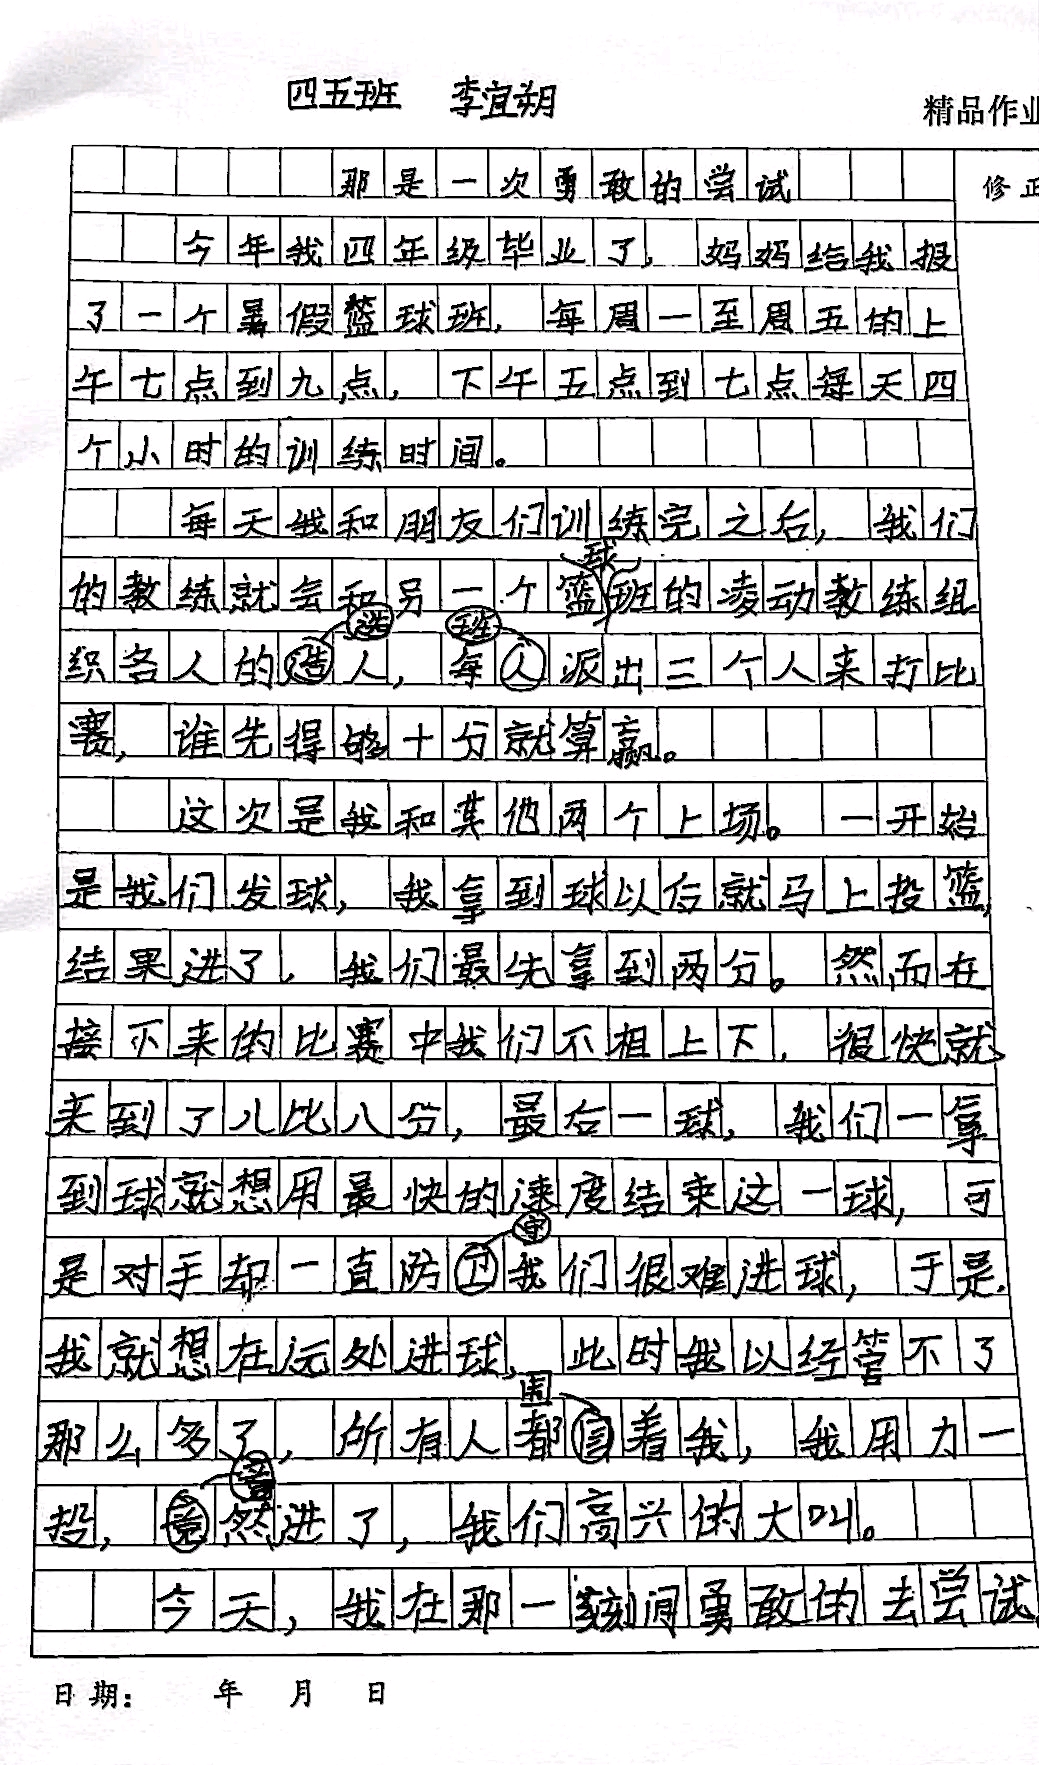 四五班 李宜朔
精品作业
那是一次勇敢的尝试
修正
今年我四年级毕业了,妈妈给我报
了一个暑假篮球班,每周一至周五的上
午七点到九点,下午五点到七点每天四
个小时的训练时间。
每天我和朋友们训练完之后,我们
球
的教练就会和另一个篮班的凌动教练组
选 班
织各人的造人,每人派出三个人来打比
赛,谁先得够十分就算赢。
这次是我和其他两个上场。一开始
是我们发球,我拿到球以后就马上投篮,
结果进了,我们最先拿到两分。然而在
接下来的比赛中我们不相上下,很快就
来到了八比八分,最后一球,我们一拿
到球就想用最快的速度结束这一球,可
守
是对手却一直防卫我们很难进球,于是
我就想在远处进球,此时我以经管不了
围
那么多了,所有人都着我,我用力一
竟
投,然进了,我们高兴的大叫。
今天,我在那一刻间勇敢的去尝试
日期: 年 月 日